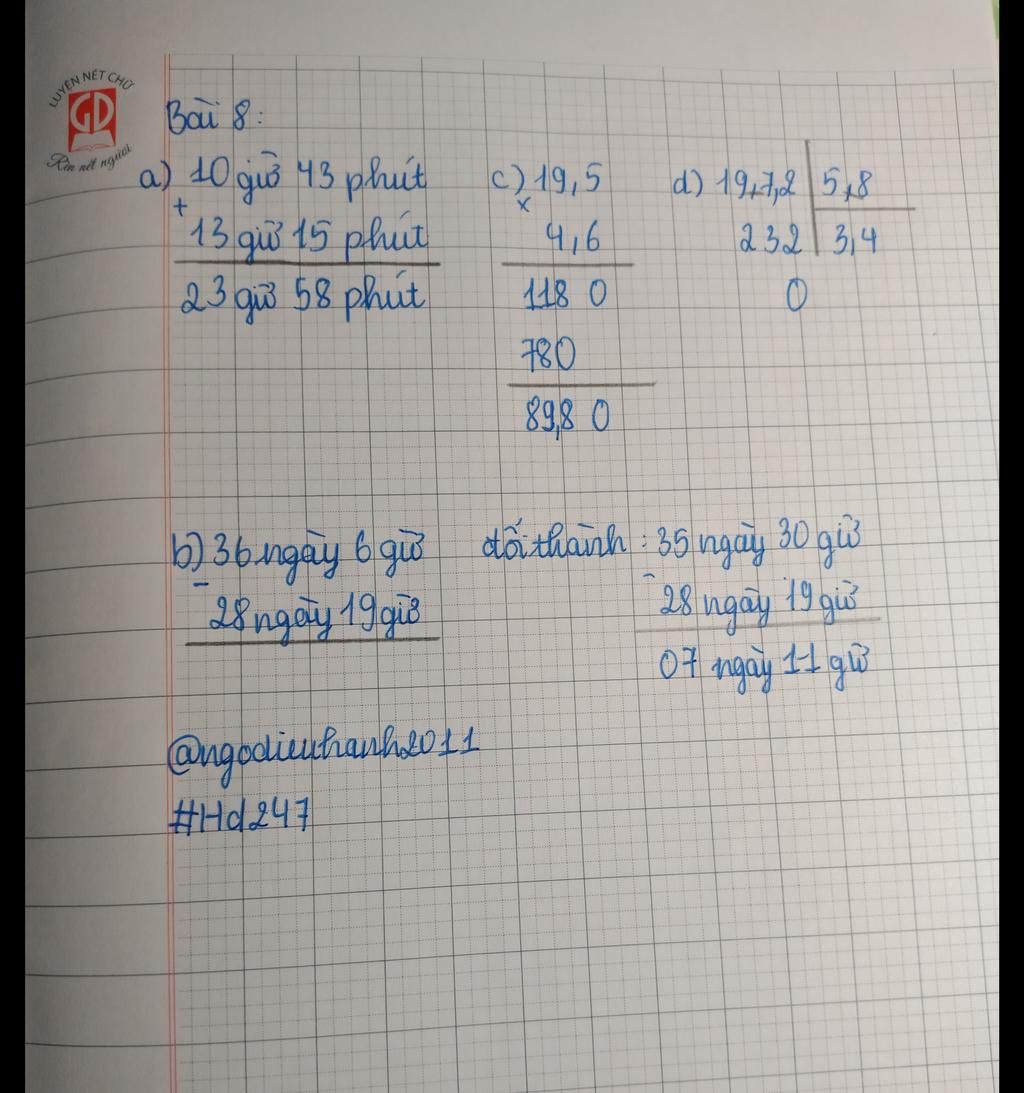 LUYỆN NÉT CHỮ
GD
Rèn nết người
Bài 8:
a) 10 giờ 43 phút
+
13 giờ 15 phút
23 giờ 58 phút
c) 19,5
x
4,6
118 0
780
89,8 0
d) 19,7,2 5,8
232 3,4
0
b) 36 ngày 6 giờ
-
28 ngày 19 giờ
đổi thành : 35 ngày 30 giờ
-
28 ngày 19 giờ
07 ngày 11 giờ
@ngodieuhanh2011
#Hd247